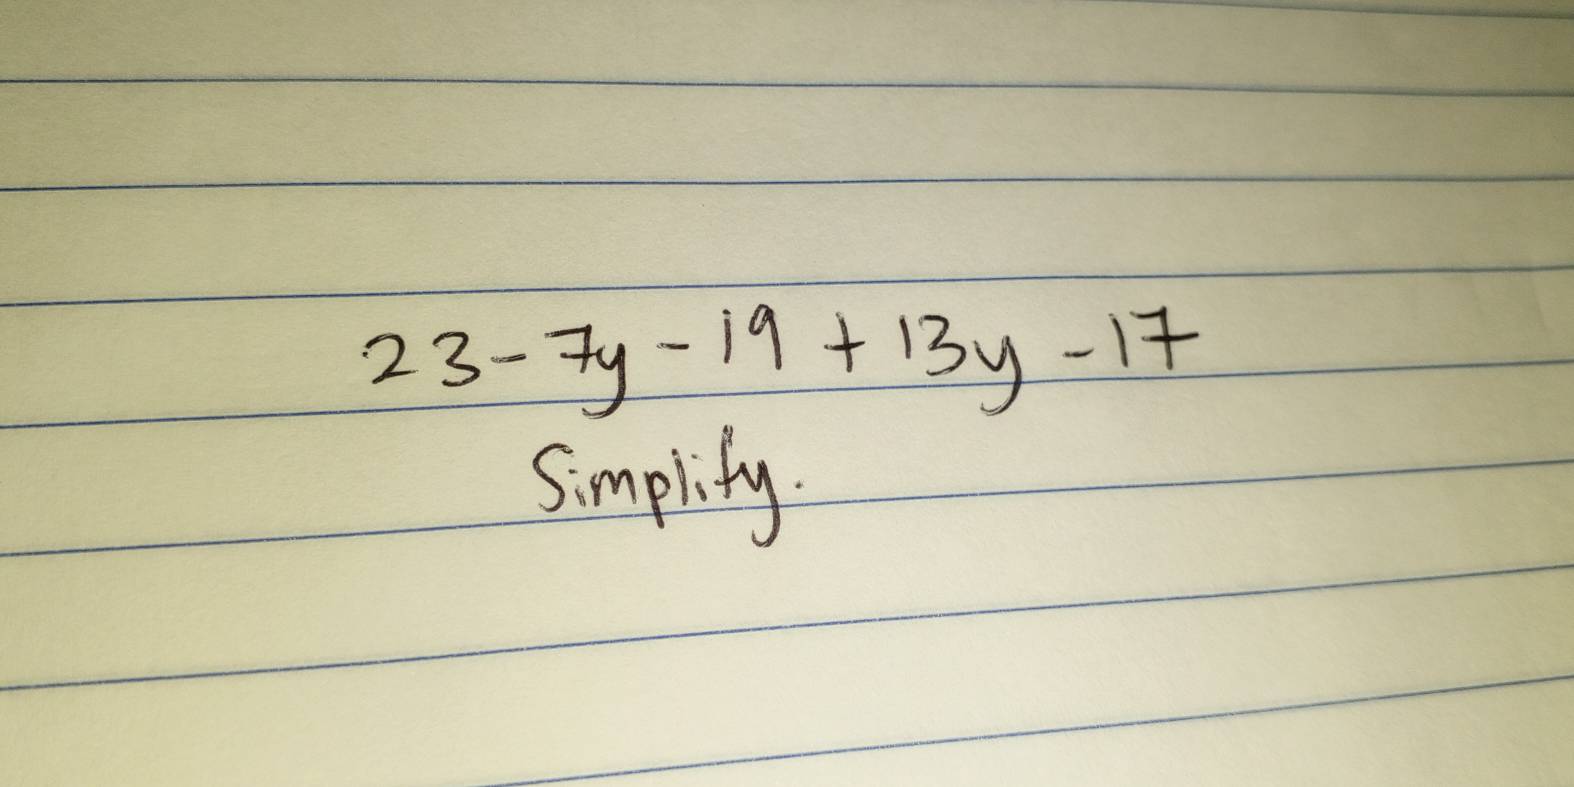 23 - 7y - 19 + 13y - 17
Simplify.